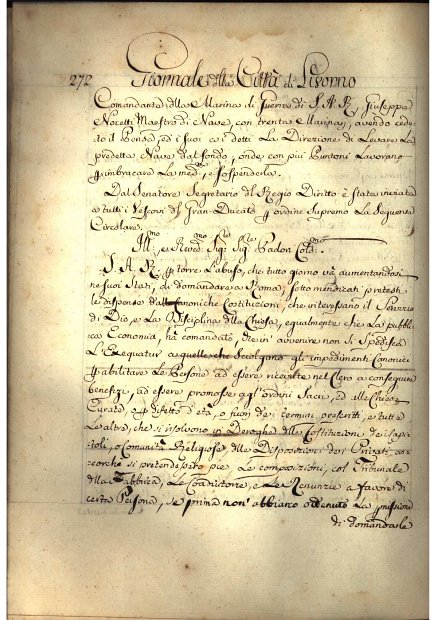 272 Giornale della Città di Livorno
Comandante della Marina di Guerra di S. A. R., Giuseppe
Nocetti Maestro di Nave, con trenta Marinari, avendo cede-
to il Bonda, ed i suoi
la Direzione di Levare La
predetta Nave dal fondo, onde con più Puntoni Lavorano
p imbracare La med.ª, e sospenderla.
Dal Senatore Segretario del Regio Diritto è stata inviata
a tutti i Vescovi del Gran-Ducato p ordine Supremo La Seguente
Circolare.
Ill.mo, e Rev.mo Sig. Sig. Padron Col.mo
S. A. R. p torre L'abuso, che tutto giorno và aumentandosi
ne suoi Stati, di domandare a Roma, sotto mendicati pretesti
le dispense dalle Canoniche Costituzioni, che interessano il Servizio
di Dio, e La Disciplina della Chiesa, egualmente che La pubbli-
ca Economia, hà comandato, che in avvenire non si Spedisca
L'Exequatur a quelle che Sciolgano gl'impedimenti Canonici
p abilitare Le Persone ad essere
nel Clero a conseguire
benefizj, ad essere promosse agl'ordini Sacri, ed alle Chiese
Curate, o p difetto d'età, o fuori dei termini prescritti, e tutte
Le altre, che si risolvono in Deroghe alle Costituzioni dei Capi-
toli, o Comunità Religiose, alle Disposizioni dei Privati, an-
corchè si pretendessero
Le composizioni, col Tribunale
della Fabbrica, Le Coadiutorie, e Le Renunzie a favore di
certa Persona, se prima non abbiano ottenuto La permissione
di domandarle